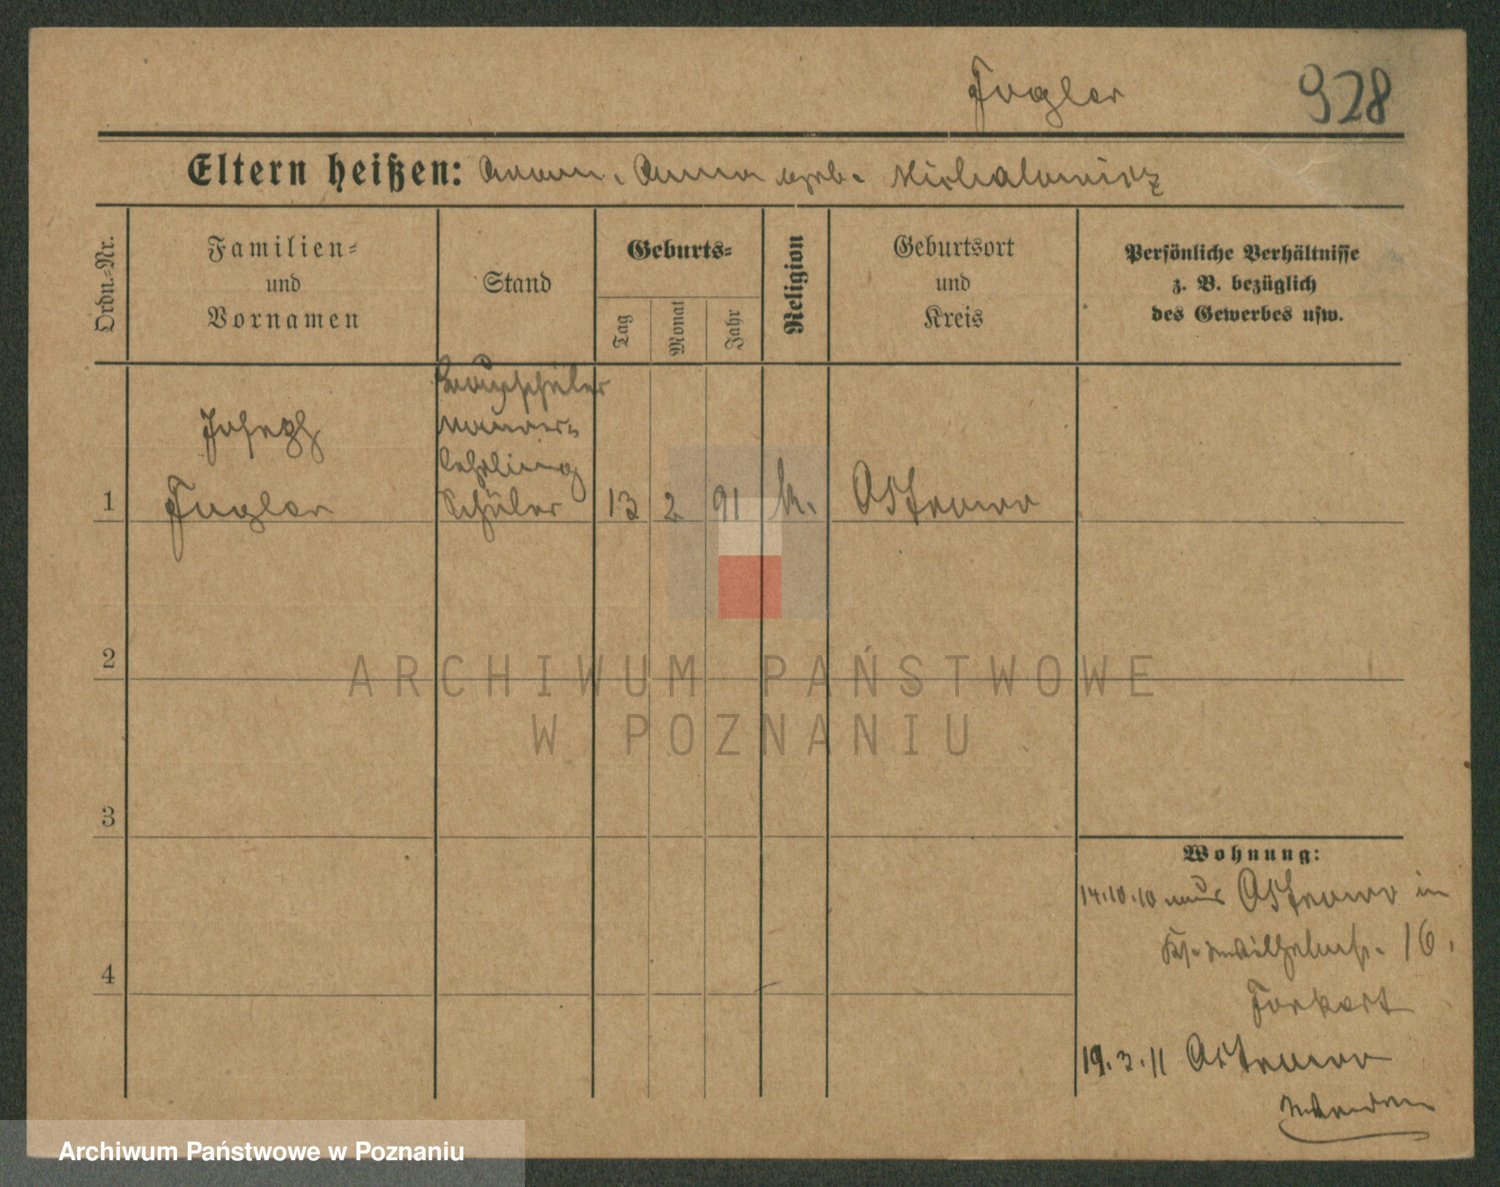 Fogler 928
Eltern heißen: Anna geb. Michalowicz
Ordn.-Nr.
Familien-
und
Vornamen
Stand
Geburts-
Tag
Monat
Jahr
Religion
Geburtsort
und
Kreis
Persönliche Verhältnisse
z. B. bezüglich
des Gewerbes usw.
Maurer-
lehrling
Joseph
1 Fogler Schüler 13 2 91 k. Ostrowo
2
3
4
Wohnung:
14.10.10 aus Ostrowo in
16.
19.3.11 Ostrowo
ARCHIWUM PAŃSTWOWE
W POZNANIU
Archiwum Państwowe w Poznaniu